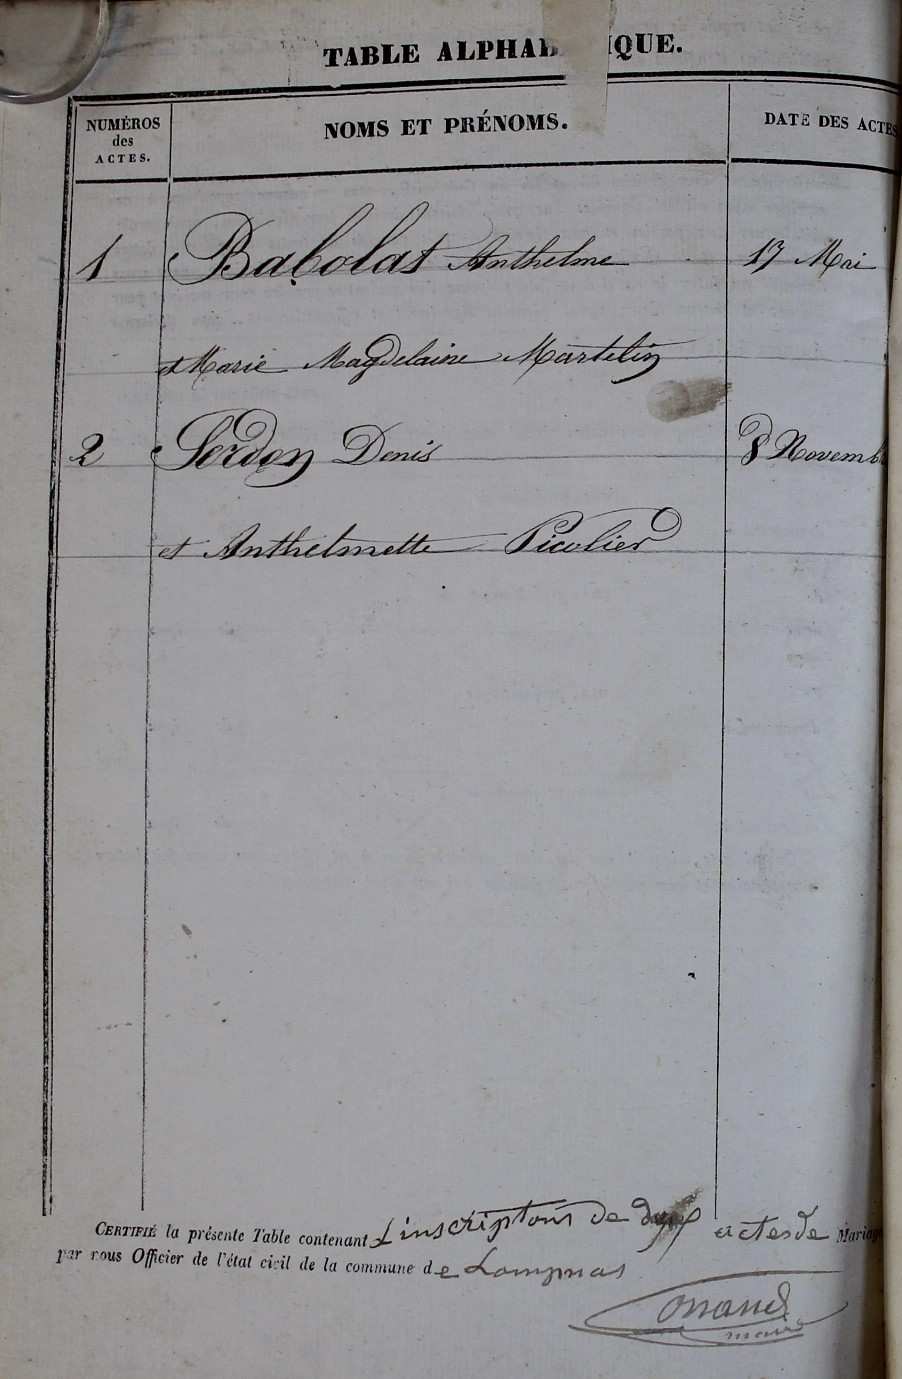 TABLE ALPHAB IQUE.
NUMÉROS
des
ACTES.
NOMS ET PRÉNOMS.
DATE DES ACTES
1 Babolat Anthelme 17 Mai
et Marie Magdelaine Martelin
2 Serdon Denis 8 Novemb
et Anthelmette Picolier
CERTIFIÉ la présente Table contenant L'inscriptoin de actes de Mariag
par nous Officier de l'état civil de la commune de Lompnas
maire